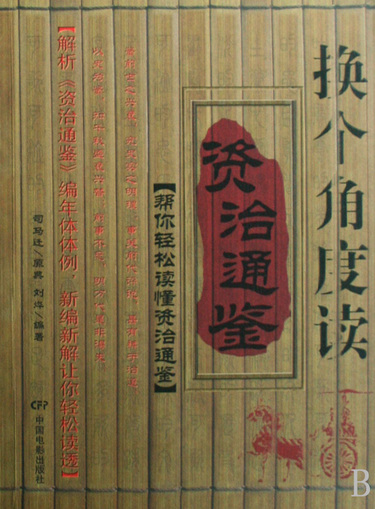 换个角度读
资治通鉴
【帮你轻松读懂资治通鉴】
【解析《资治通鉴》编年体体例,新编新解让你轻松读透】
司马迁/原典 刘烨/编著
CFP
中国电影出版社
B